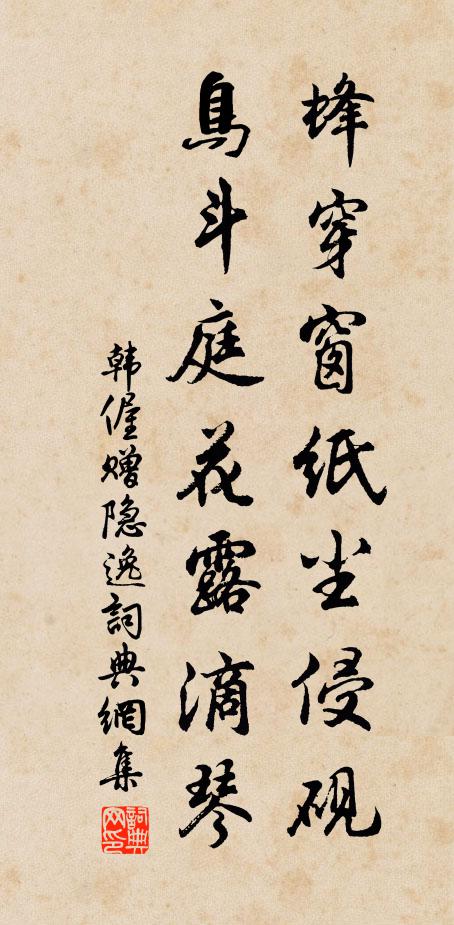 蜂穿窗纸尘侵砚
鸟斗庭花露滴琴
韩偓赠隐逸詞典網集
詞典
网印